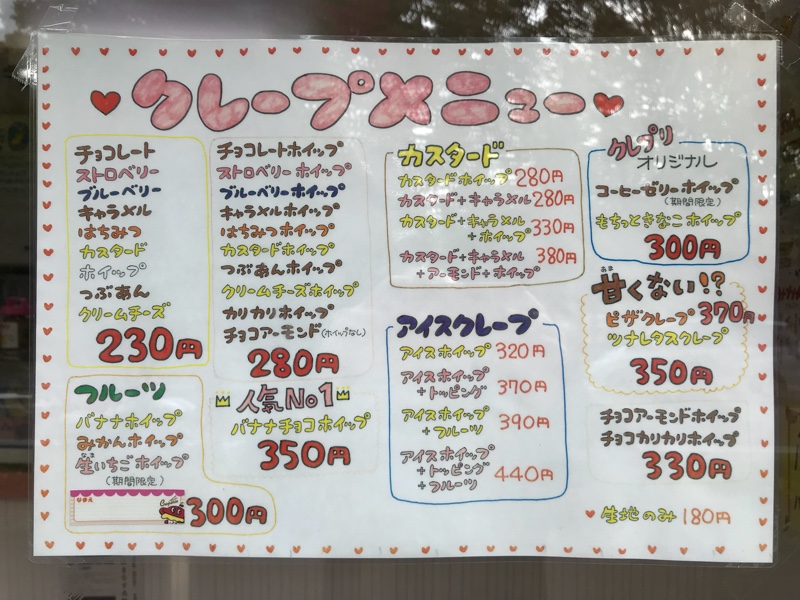 クレープメニュー
チョコレート
ストロベリー
ブルーベリー
キャラメル
はちみつ
カスタード
ホイップ
つぶあん
クリームチーズ
230円
チョコレートホイップ
ストロベリーホイップ
ブルーベリーホイップ
キャラメルホイップ
はちみつホイップ
カスタードホイップ
つぶあんホイップ
クリームチーズホイップ
カリカリホイップ
チョコアーモンド(ホイップなし)
280円
フルーツ
バナナホイップ
みかんホイップ
生いちごホイップ
(期間限定)
300円
人気No1
バナナチョコホイップ
350円
カスタード
カスタードホイップ 280円
カスタード+キャラメル 280円
カスタード+キャラメル
+ホイップ 330円
カスタード+キャラメル
+アーモンド+ホイップ 380円
アイスクレープ
アイスホイップ 320円
アイスホイップ
+トッピング 370円
アイスホイップ
+フルーツ 390円
アイスホイップ
+トッピング
+フルーツ 440円
クレプリ
オリジナル
コーヒーゼリーホイップ
(期間限定)
もちっときなこホイップ
300円
甘くない!?
ピザクレープ 370円
ツナレタスクレープ
350円
チョコアーモンドホイップ
チョコカリカリホイップ
330円
生地のみ 180円